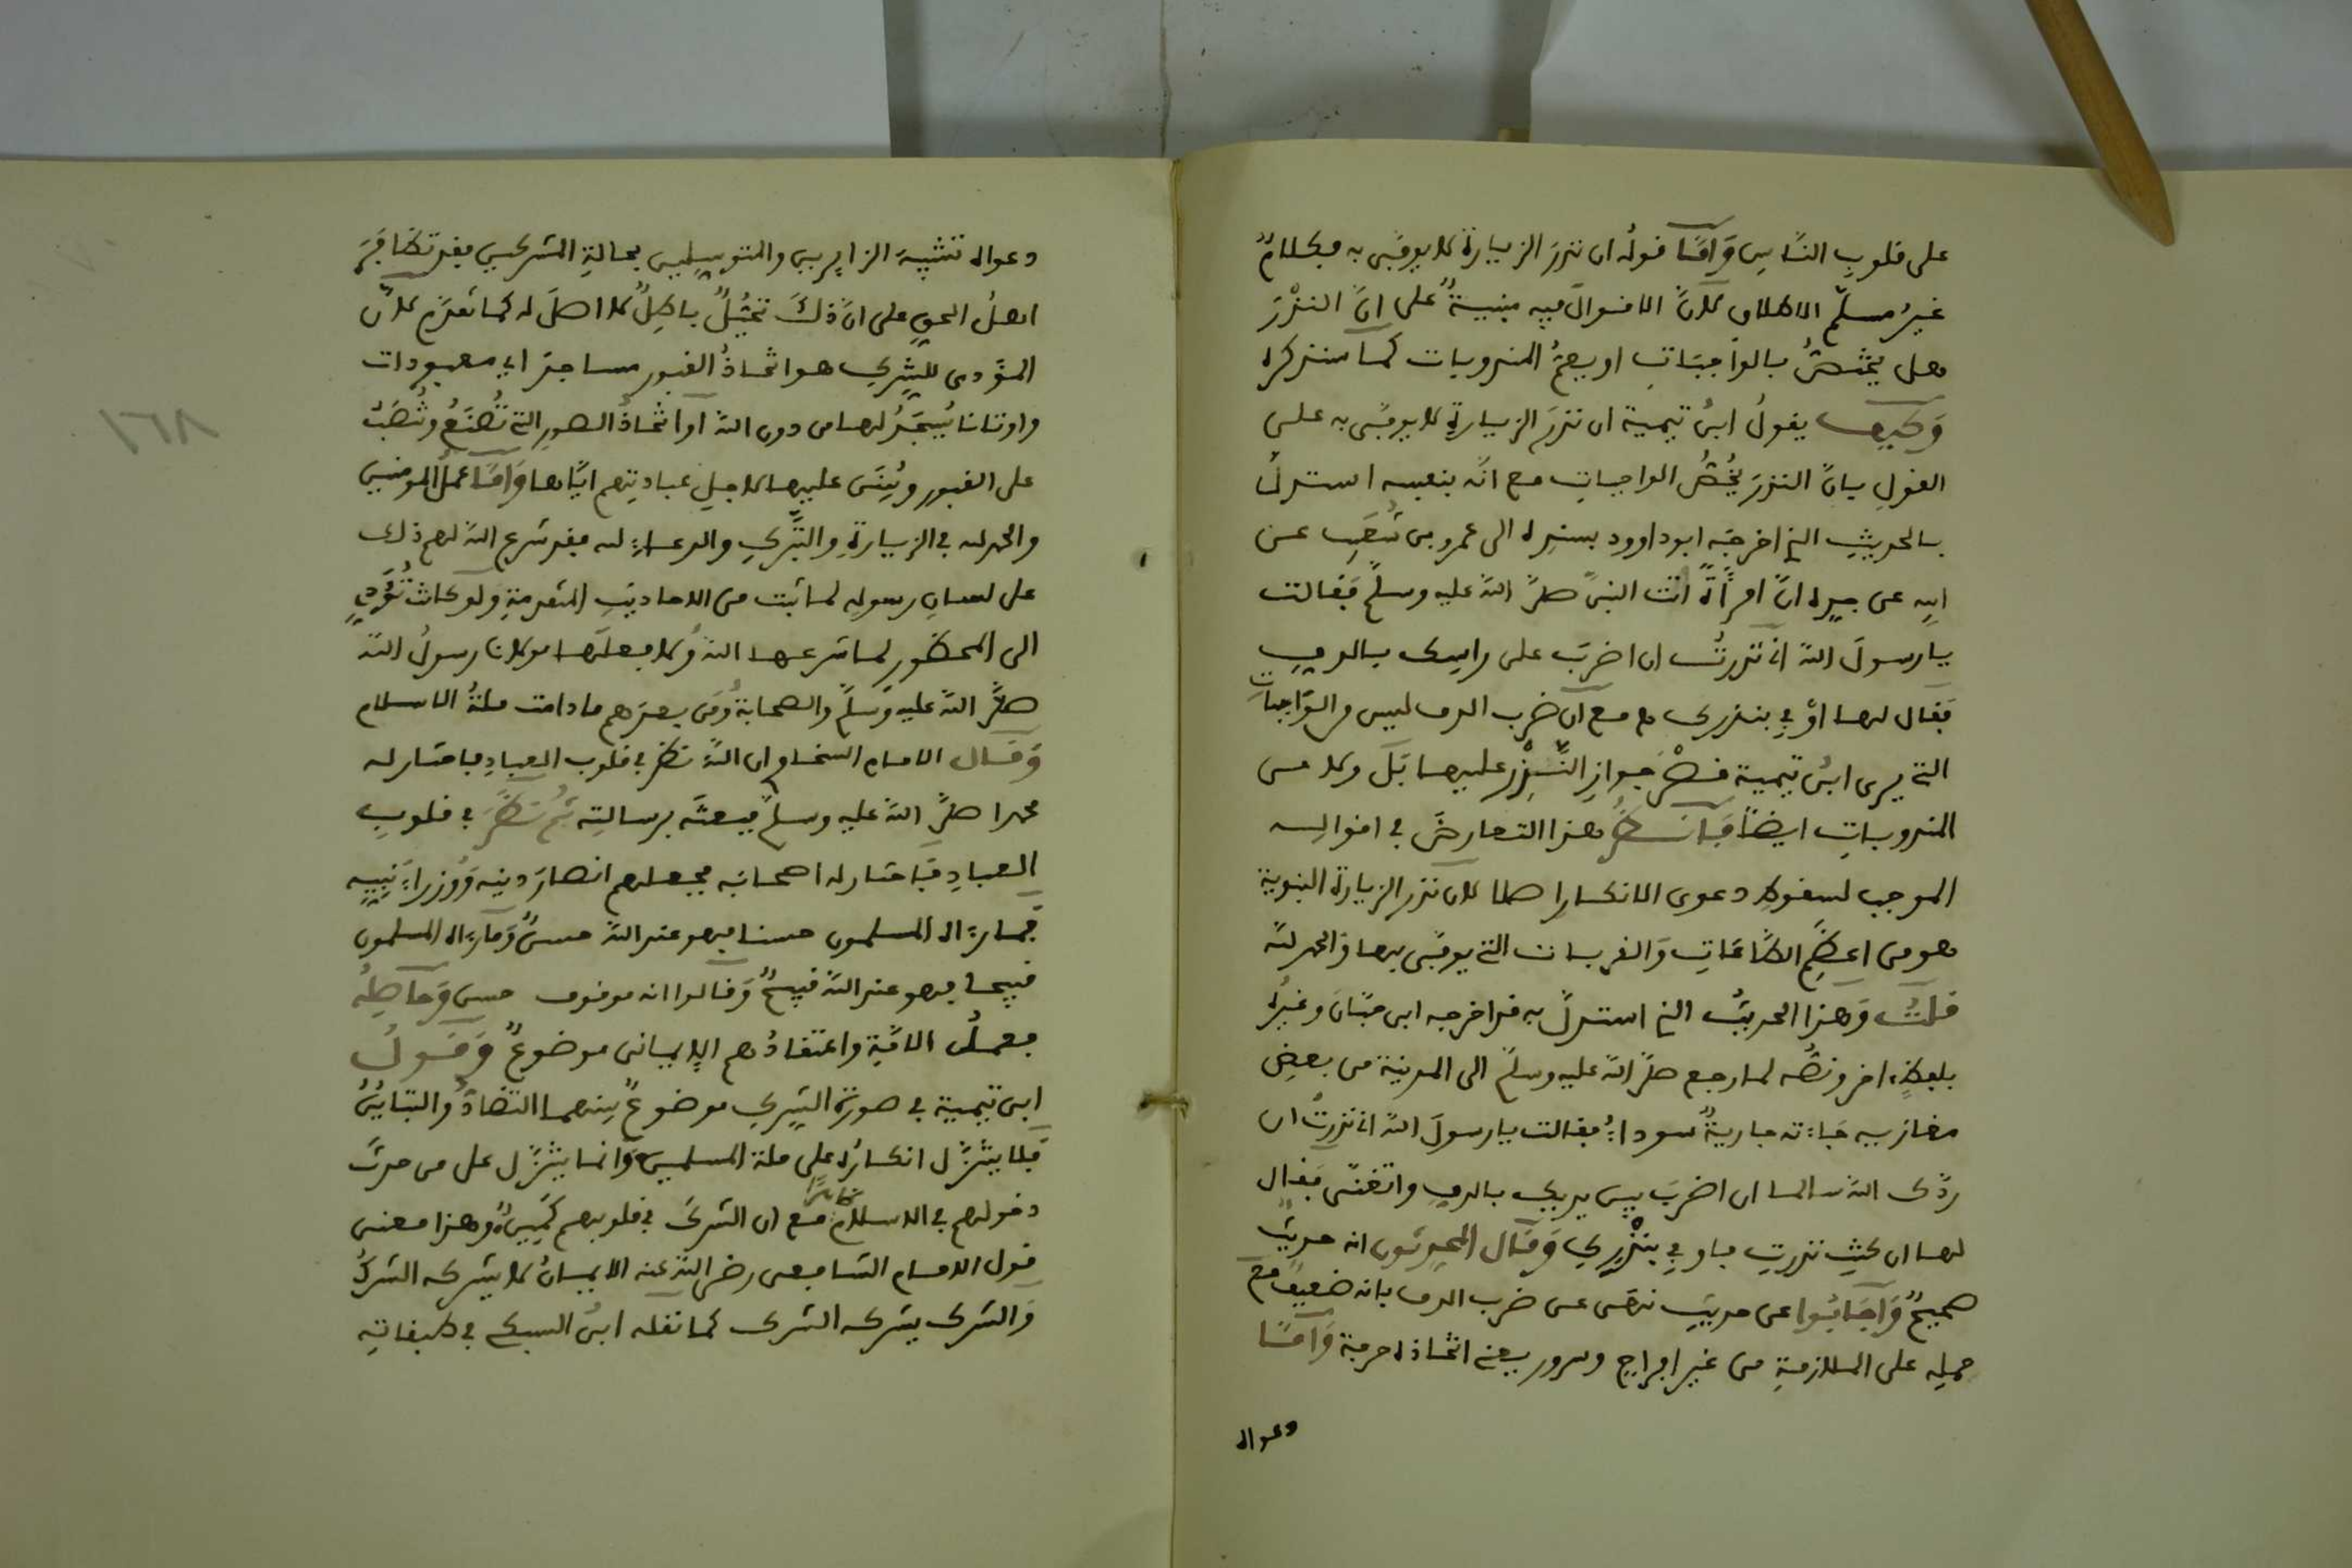 على قلوبِ النَّاسِ وَأمَّا قولُه ان نذرَ الزيارة لا يوفّى به فكلامٌ
غيرُ مسلّم الاطلاق لأنَّ الاقوالَ فيه مبنيةٌ على انَّ النذْرَ
هل يختصُّ بالواجبَاتِ او يعمُّ المندوبات كما سنذكره
وَكيف يقولُ ابنُ تيمية ان نذرَ الزيارةِ لا يوفّى به على
القولِ بانَّ النذرَ يخُصُّ الواجباتِ مع انَّه بنفسه استدلَّ
بالحديثِ الذي اخرجَه ابو داوود بسندِه الى عمرو بن شُعَيبِ عن
ابيه عن جدِه انَّ امرأَةً اتت النبىَّ صلَّى اللهُ عليه وسلّم فقالت
يا رسولَ اللهِ اني نذرتُ ان اضربَ على راسِك بالدفِ
فقَال لها اوْفي بنذرك مع انَّ ضرب الدف ليس من الوَاجبات
التي يرى ابنُ تيمية قصْرَ جوازِ النَّذْرِ عليها بَل ولا من
المندوباتِ ايضاً فَانظُر هذا التعارضَ في اقوالِه
الموجب لسقوطِ دعوى الانكار اصلا لان نذر الزيارة النبوية
هو من اعظَمِ الطَّاعَاتِ وَالقربات التي يوفّى بها وَالحمد لله
قلتُ وَهذا الحديثُ الذي استدلَّ به قد اخرجه ابن حبّانَ وغيرُه
بلفظٍ اخر ونصُّه لما رجع صلَّى اللهُ عليه وسلّم الى المدينة من بعضِ
مغازيه جَاءته جاريةٌ سوداءُ فقالت يا رسولَ اللهِ اني نذرتُ ان
ردَّك اللهُ سالما ان اضربَ بين يديك بالدفِ واتغنّى فقال
لها ان كنتِ نذرتِ فاوفي بنذْرِكِ وَقال المحدثون انه حديثٌ
صحيحٌ وَاجَابُوا عن حديثِ نهى عن ضرب الدف بانه ضعيفٌ مع
حملِه على الملازمةِ من غير افراحٍ وسرور يعني اتخاذه حرفة وَأمَّا
دعواه
دعواه تشبيهَ الزايرين والمتوسلين بحالةِ المشركين فقد تضافرَ
اهلُ الحقِ على انَّ ذلكَ تخيُّلٌ باطِلٌ لا اصلَ له كما تَقدّم لأنَّ
المؤدى للشركِ هو اتخاذُ القبور مساجدَ اي معبودات
واوثانا يُسجَدُ لها من دون الله او اتخاذُ الصورِ التي تُصْنَعُ وتُنصَبُ
على القبور ويُبْنَى عليها لاجلِ عبادتِهم ايَّاها وَأمَّا عملُ المومنين
والحمد لله في الزيارةِ والتَّبركِ والدعاءِ لله فقد شرع اللهُ لهم ذلك
على لسانِ رسولِه لما ثبت من الاحاديثِ المتقدمةِ وَلو كانت تُؤدي
الى المحظور لما شرعها اللهُ وَلا فعلَها مولانا رسولُ اللهِ
صلَّى اللهُ عليه وَسلّم والصحابةُ وَمن بعدَهم ما دامت ملةُ الاسلام
وَقال الامام السخاوي ان اللهَ نظر في قلوب العبادِ فاختار له
محمدا صلَّى اللهُ عليه وسلّم فبعثَه برسالتِه ثم نظَرَ في قلوبِ
العبادِ فَاختار له اصحابَه فجعلهم انصارَ دينِه وَوُزراءَ نَبِيِه
فما رءاه المسلمون حسنا فهو عند اللهِ حسنٌ وَما رءاه المسلمون
قبيحا فهو عند اللهِ قبيحٌ وَقالوا انه موقوف حسن وَحاصِلُه
فعملُ الامَّةِ واعتقادُهم الايمانى موضوعٌ وَقَولُ
ابن تيمية في صورةِ الشركِ موضوعٌ بينهما التضادُّ والتباينُ
فلا يتنزَّل انكارُه على ملة المسلمين وَانما يتنزَّل على من حدثَ
دخولهم في الاسلام ظاهراً مع ان الشركَ في قلوبهم كمينٌ وهذا معنى
قول الامام الشافعي رضي اللهُ عنه الايمانُ لا يشركه الشركُ
وَالشرك يشركه الشرك كما نقله ابنُ السبكي في طبقاتِه
١٦٨